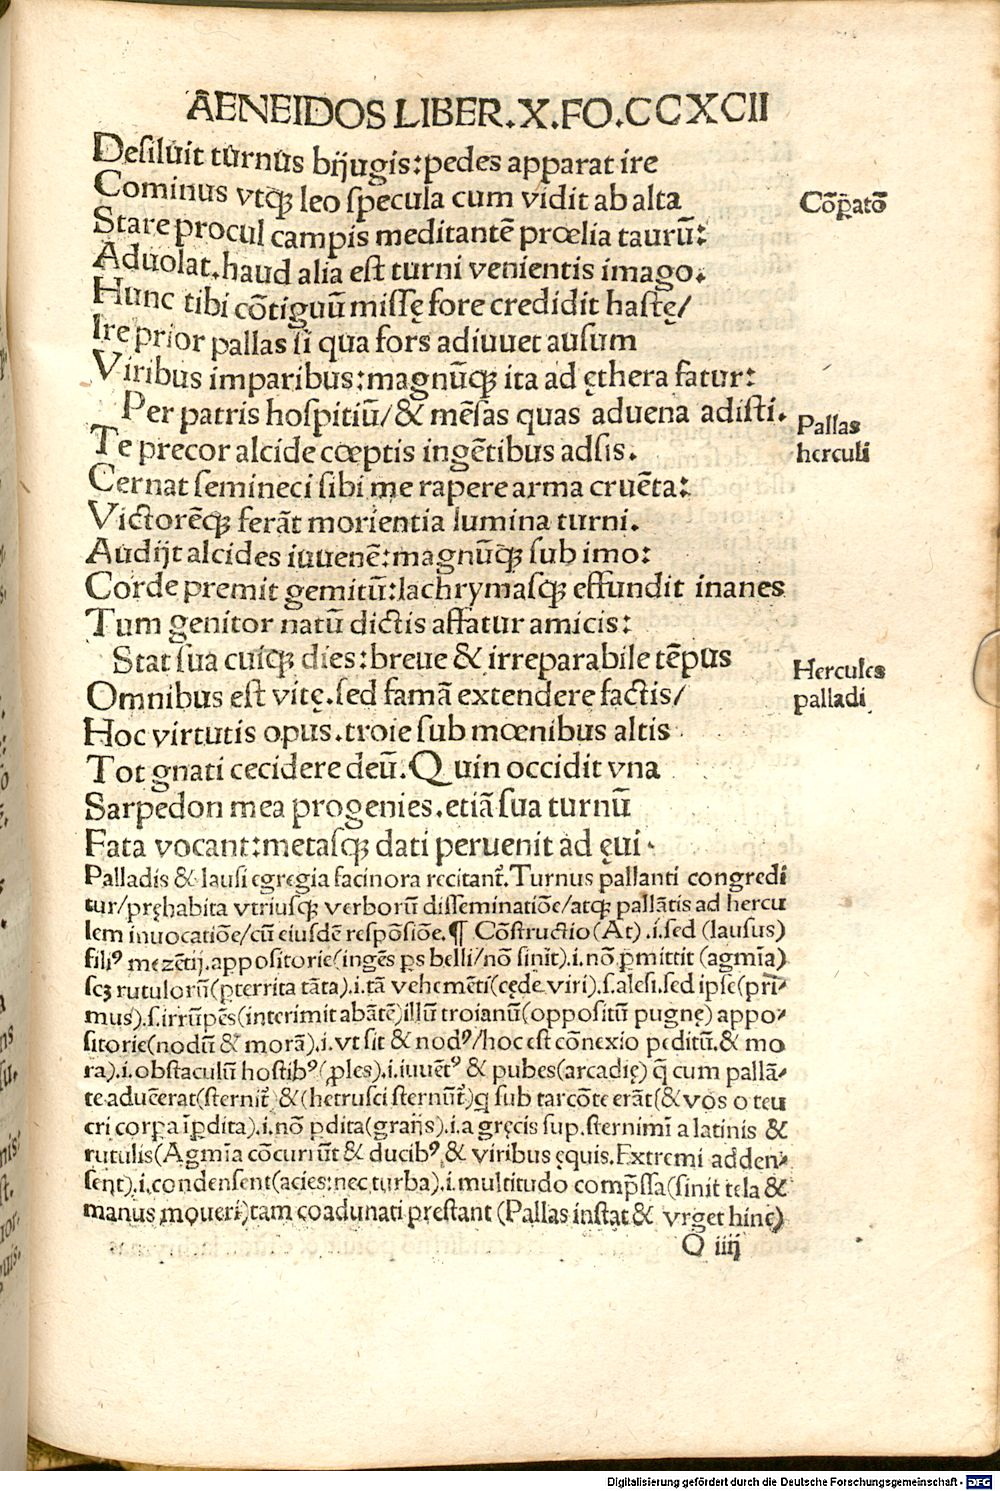 AENEIDOS LIBER.X.FO.CCXCII
Desiluit turnus bijugis:pedes apparat ire
Cominus vtqꝫ leo specula cum vidit ab alta
Cõp̃atõ
Stare procul campis meditantẽ prœlia taurũ:
Aduolat.haud alia est turni venientis imago.
Hunc tibi cõtiguũ missę fore credidit hastę/
Ire prior pallas si qua fors adiuuet ausum
Viribus imparibus:magnũqꝫ ita ad ęthera fatur:
Per patris hospitiũ/& mẽsas quas aduena adisti.
Pallas
herculi
Te precor alcide cœptis ingẽtibus adsis.
Cernat semineci sibi me rapere arma cruẽta:
Victorẽqꝫ ferãt morientia lumina turni.
Audijt alcides iuuenẽ:magnũqꝫ sub imo:
Corde premit gemitũ:lachrymasqꝫ effundit inanes
Tum genitor natũ dictis affatur amicis:
Stat sua cuiqꝫ dies:breue & irreparabile tẽpus
Hercules
palladi
Omnibus est vitę.sed famã extendere factis/
Hoc virtutis opus.troie sub mœnibus altis
Tot gnati cecidere deũ.Quin occidit vna
Sarpedon mea progenies.etiã sua turnũ
Fata vocant:metasqꝫ dati peruenit ad ęui.
Palladis & lausi egregia facinora recitant̃.Turnus pallanti congredi
tur/pręhabita vtriusqꝫ verborũ disseminatiõe/atqꝫ pallãtis ad hercu
lem inuocatiõe/cũ eiusdẽ respõsiõe.¶ Cõstructio(At).i.sed (lausus)
filiꝰ mezẽtij.appositorie(ingẽs ꝑs belli/nõ sinit).i.nõ ꝑmittit (agmĩa)
scꝫ rutulorũ(ꝑterrita tãta).i.tã vehemẽti(cęde viri).s.alesi.sed ipse(pri-
mus).s.irrũpẽs(interimit abãtẽ)illũ troianũ(oppositũ pugnę) appo-
sitorie(nodũ & morã).i.vt sit & nodꝰ/hoc est cõnexio peditũ.& mo
ra).i.obstaculũ hostibꝰ(ꝓles).i.iuuẽtꝰ & pubes(arcadię) q̃ cum pallã-
te aduẽerat(sternit̃) &(hetrusci sternũt̃)q sub tarcõte erãt(& vos o teu
cri corꝑa ĩꝑdita).i.nõ ꝑdita(graijs).i.a gręcis sup.sternimĩ a latinis &
rutulis(Agmĩa cõcurrũt & ducibꝰ & viribus ęquis.Extremi adden-
sent).i.condensent(acies:nec turba).i.multitudo comp̃ssa(sinit tela &
manus moueri)tam coadunati prestant (Pallas instat & vrget hinc)
Q iiij
Digitalisierung gefördert durch die Deutsche Forschungsgemeinschaft - DFG